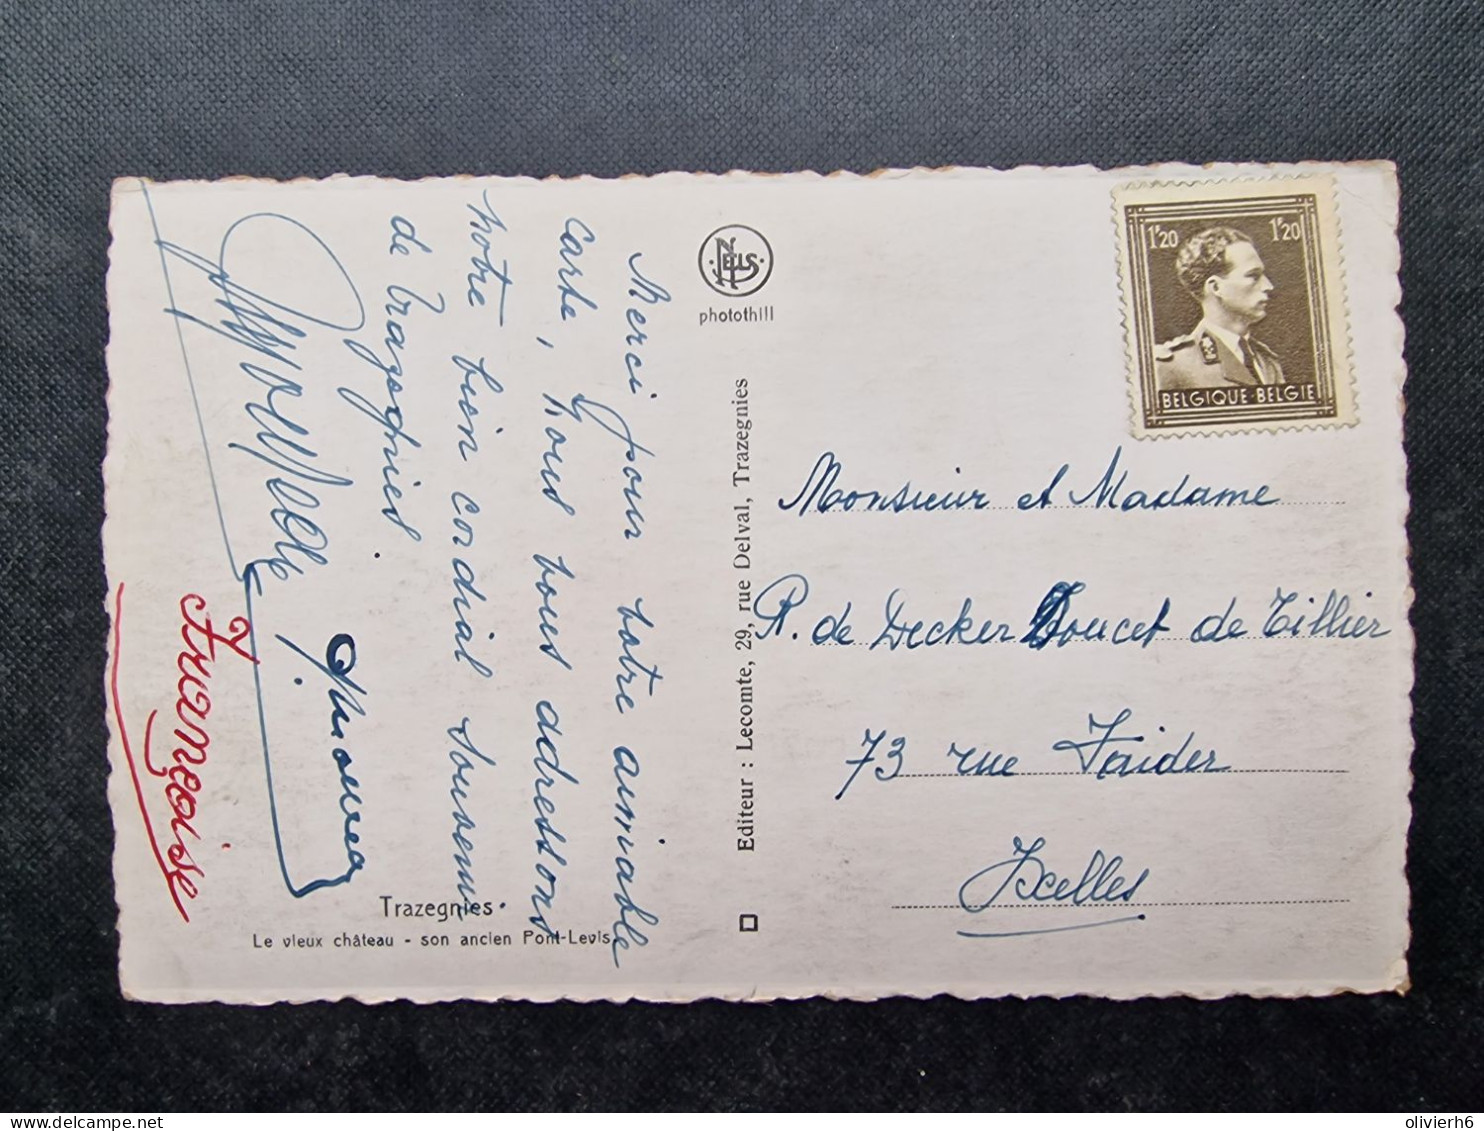 Merci pour votre aimable
carte, Nous vous adressons
notre bien cordial souvenir
de Trazegnies
Françoise
Trazegnies.
Le vieux château - son ancien Pont-Levis.
NELS
photothill
Editeur : Lecomte, 29, rue Delval, Trazegnies
1F20 1F20
BELGIQUE-BELGIE
Monsieur et Madame
R. de Decker Doucet de Tillier
73 rue Faider
Ixelles
olivierh6